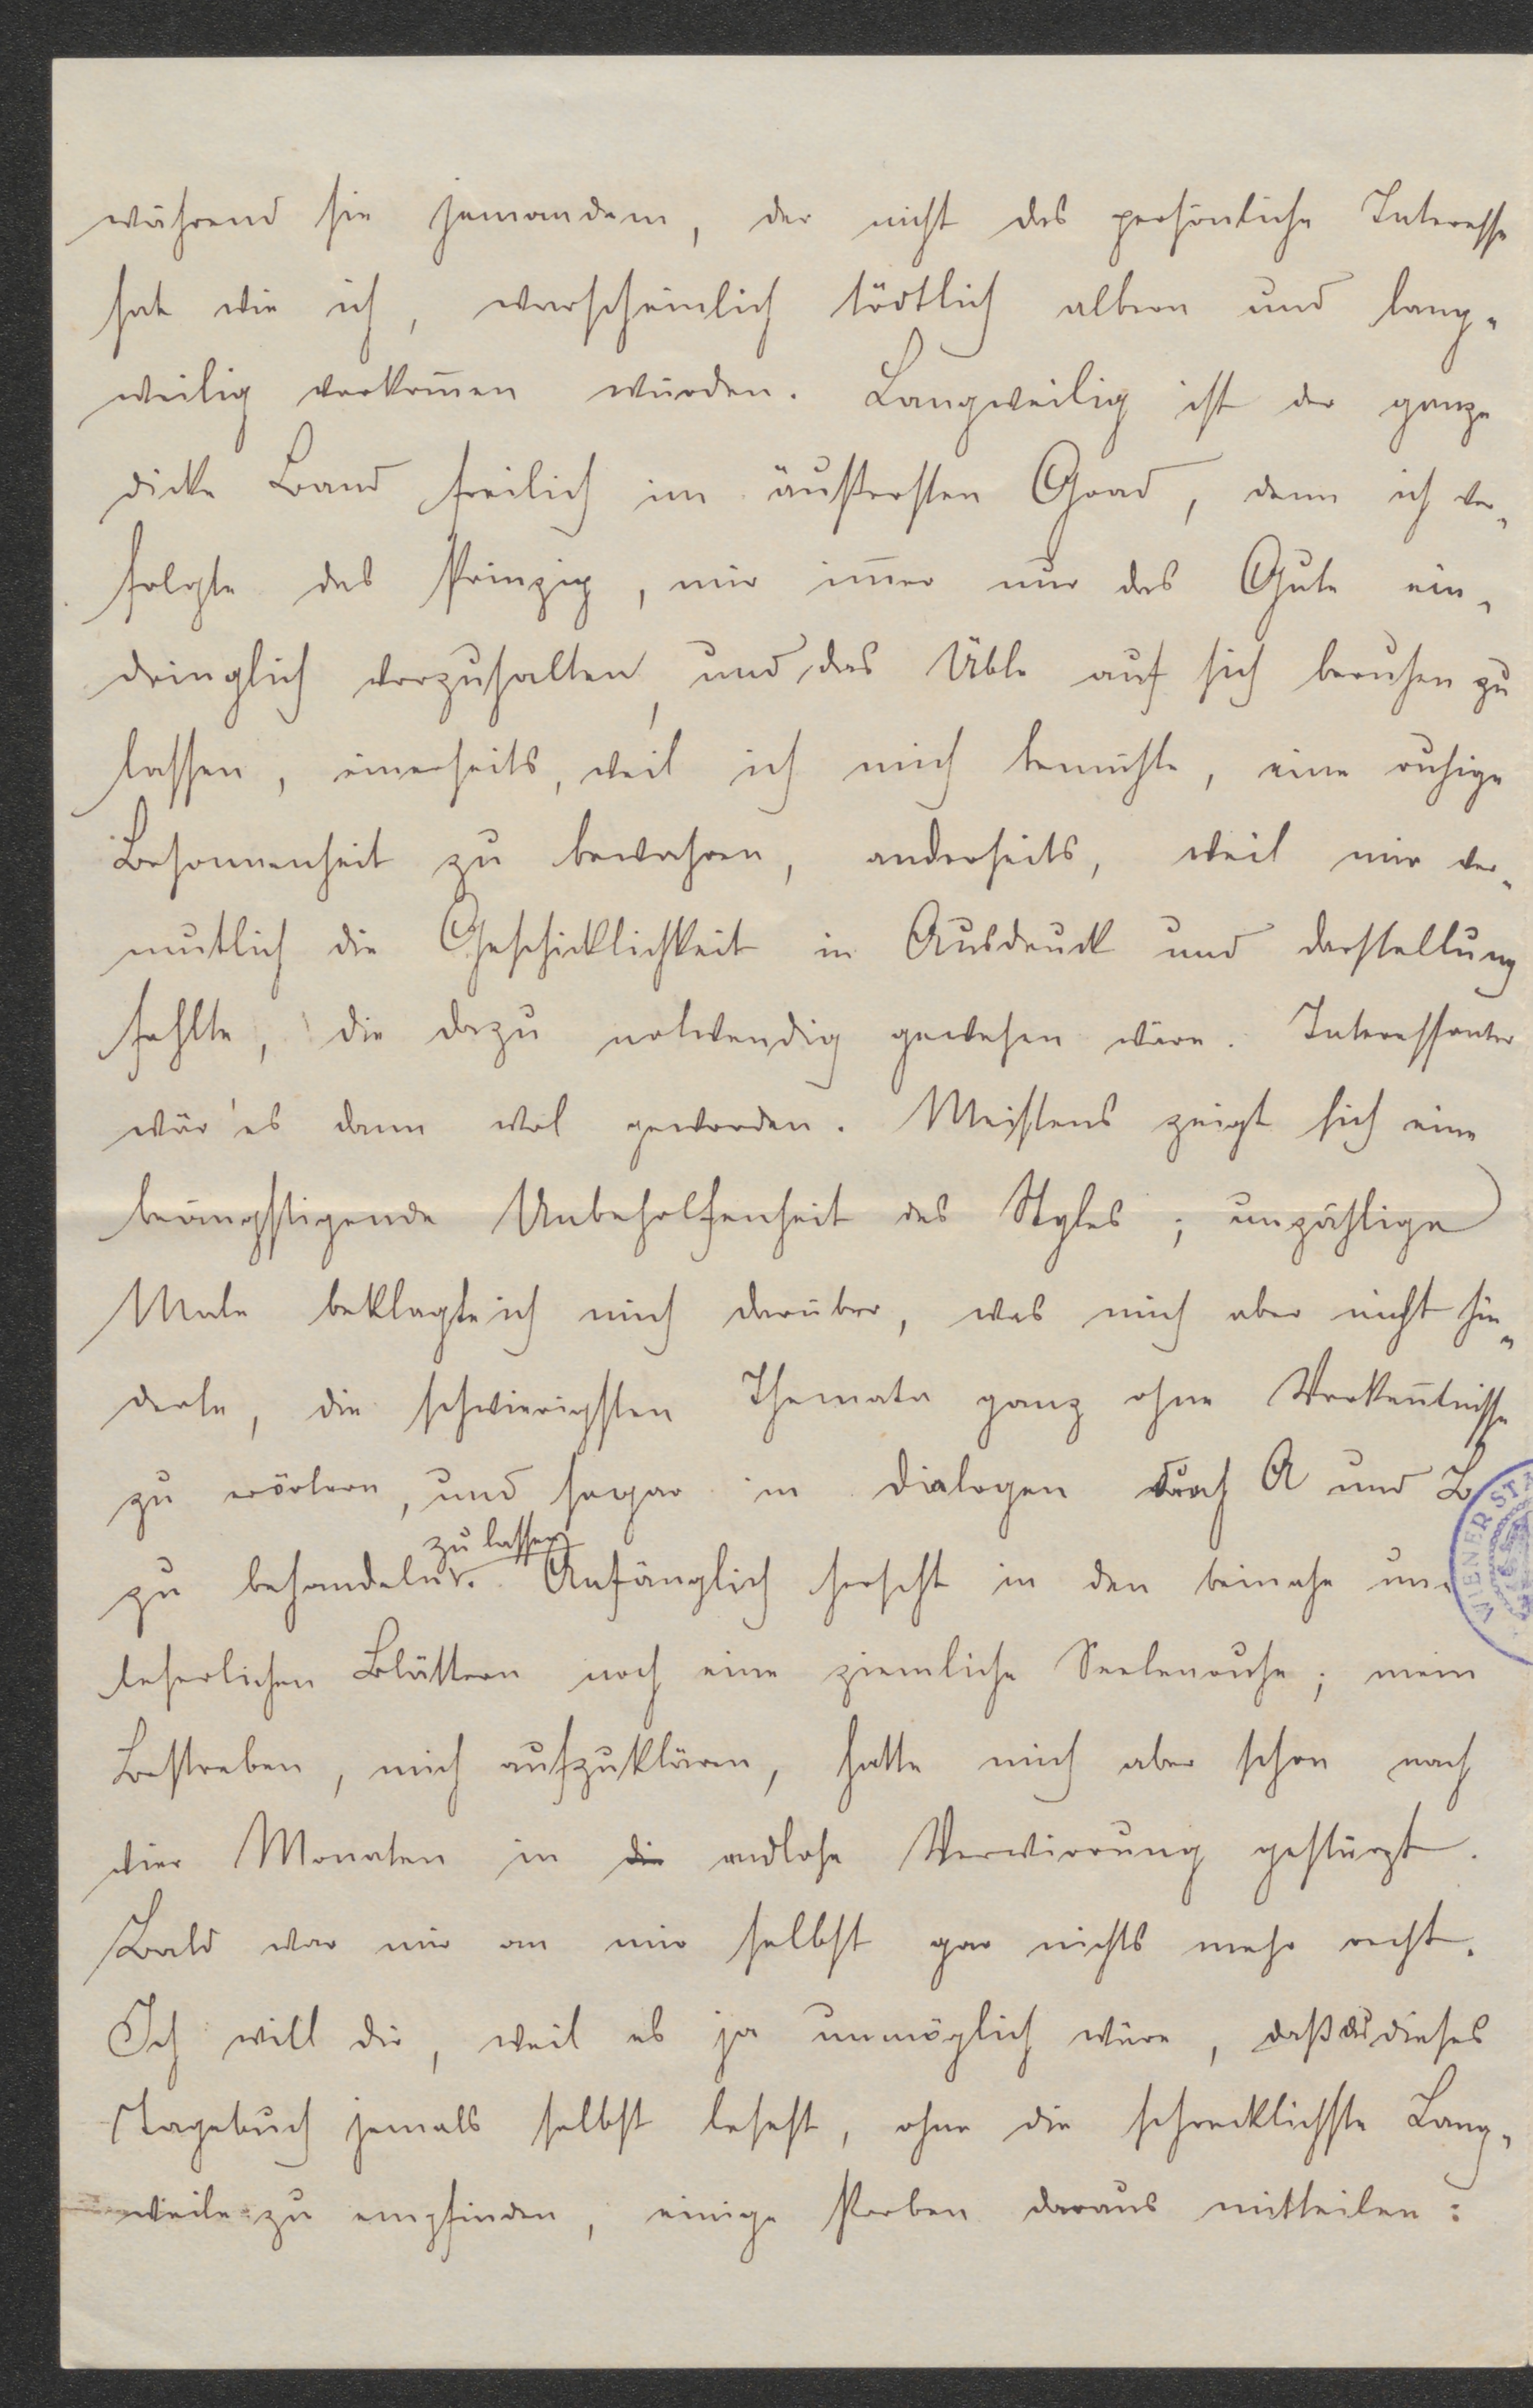 während sie jemandem, der nicht das persönliche Interesse
hat wie ich, warscheinlich tödtlich albern und lang-
weilig vorkom̄en würden. Langweilig ist der ganze
dicke Band freilich im äußersten Grad, denn ich ver-
folgte das Prinzip, mir im̄er nur das Gute ein-
dringlich vorzuhalten, und das Üble auf sich beruhen zu
lassen, einerseits, weil ich mich bemühte, eine ruhige
Besonnenheit zu bewahren, anderseits, weil mir ver-
mutlich die Geschicklichkeit in Ausdruck und Darstellung
fehlte, die dazu notwendig gewesen wäre. Interessanter
wär' es dann wol geworden. Meistens zeigt sich eine
beängstigende Unbeholfenheit des Styles; unzählige
Male beklagte ich mich darüber, was mich aber nicht hin-
derte, die schwierigsten Themata ganz ohne Vorken̄tnisse
zu erörtern, und sogar in Dialogen durch A und B
zu lassen
zu behandeln. Anfänglich herscht in den beinahe un-
leserlichen Blättern noch eine ziemliche Seelenruhe; mein
Bestreben, mich aufzuklären, hatte mich aber schon nach
vier Monaten in die endlose Verwirrung gestürzt.
Bald war mir an mir selbst gar nichts mehr recht.
Ich will dir, weil es ja unmöglich wäre, daß du dieses
Tagebuch jemals selbst lesest, ohne die schrecklichste Lang-
weile zu empfinden, einige Proben daraus mitteilen:
WIENER STA